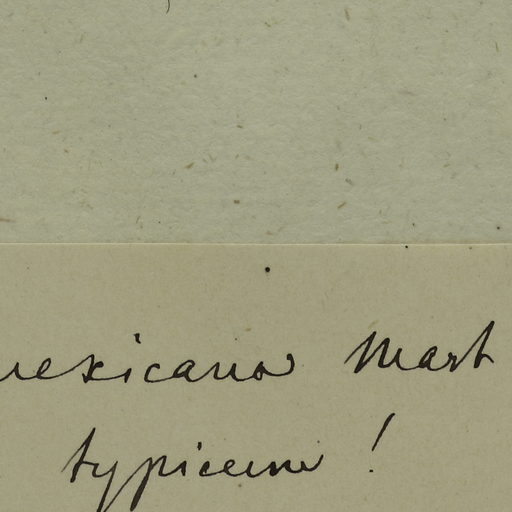 mexicana Mart
typicum !